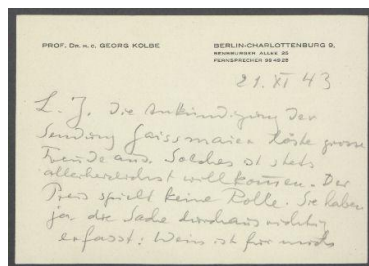 PROF. DR. H. C. GEORG KOLBE
BERLIN-CHARLOTTENBURG 9,
SENSBURGER ALLEE 25
FERNSPRECHER 99 49 25
21. XI 43
L. J. die Ankündigung der
Sendung Gaissmaier löste grosse
Freude aus. Solches ist stets
allerherzlichst willkommen. Der
Preis spielt keine Rolle. Sie haben
ja die Sache durchaus richtig
erfasst: Wein ist für mich